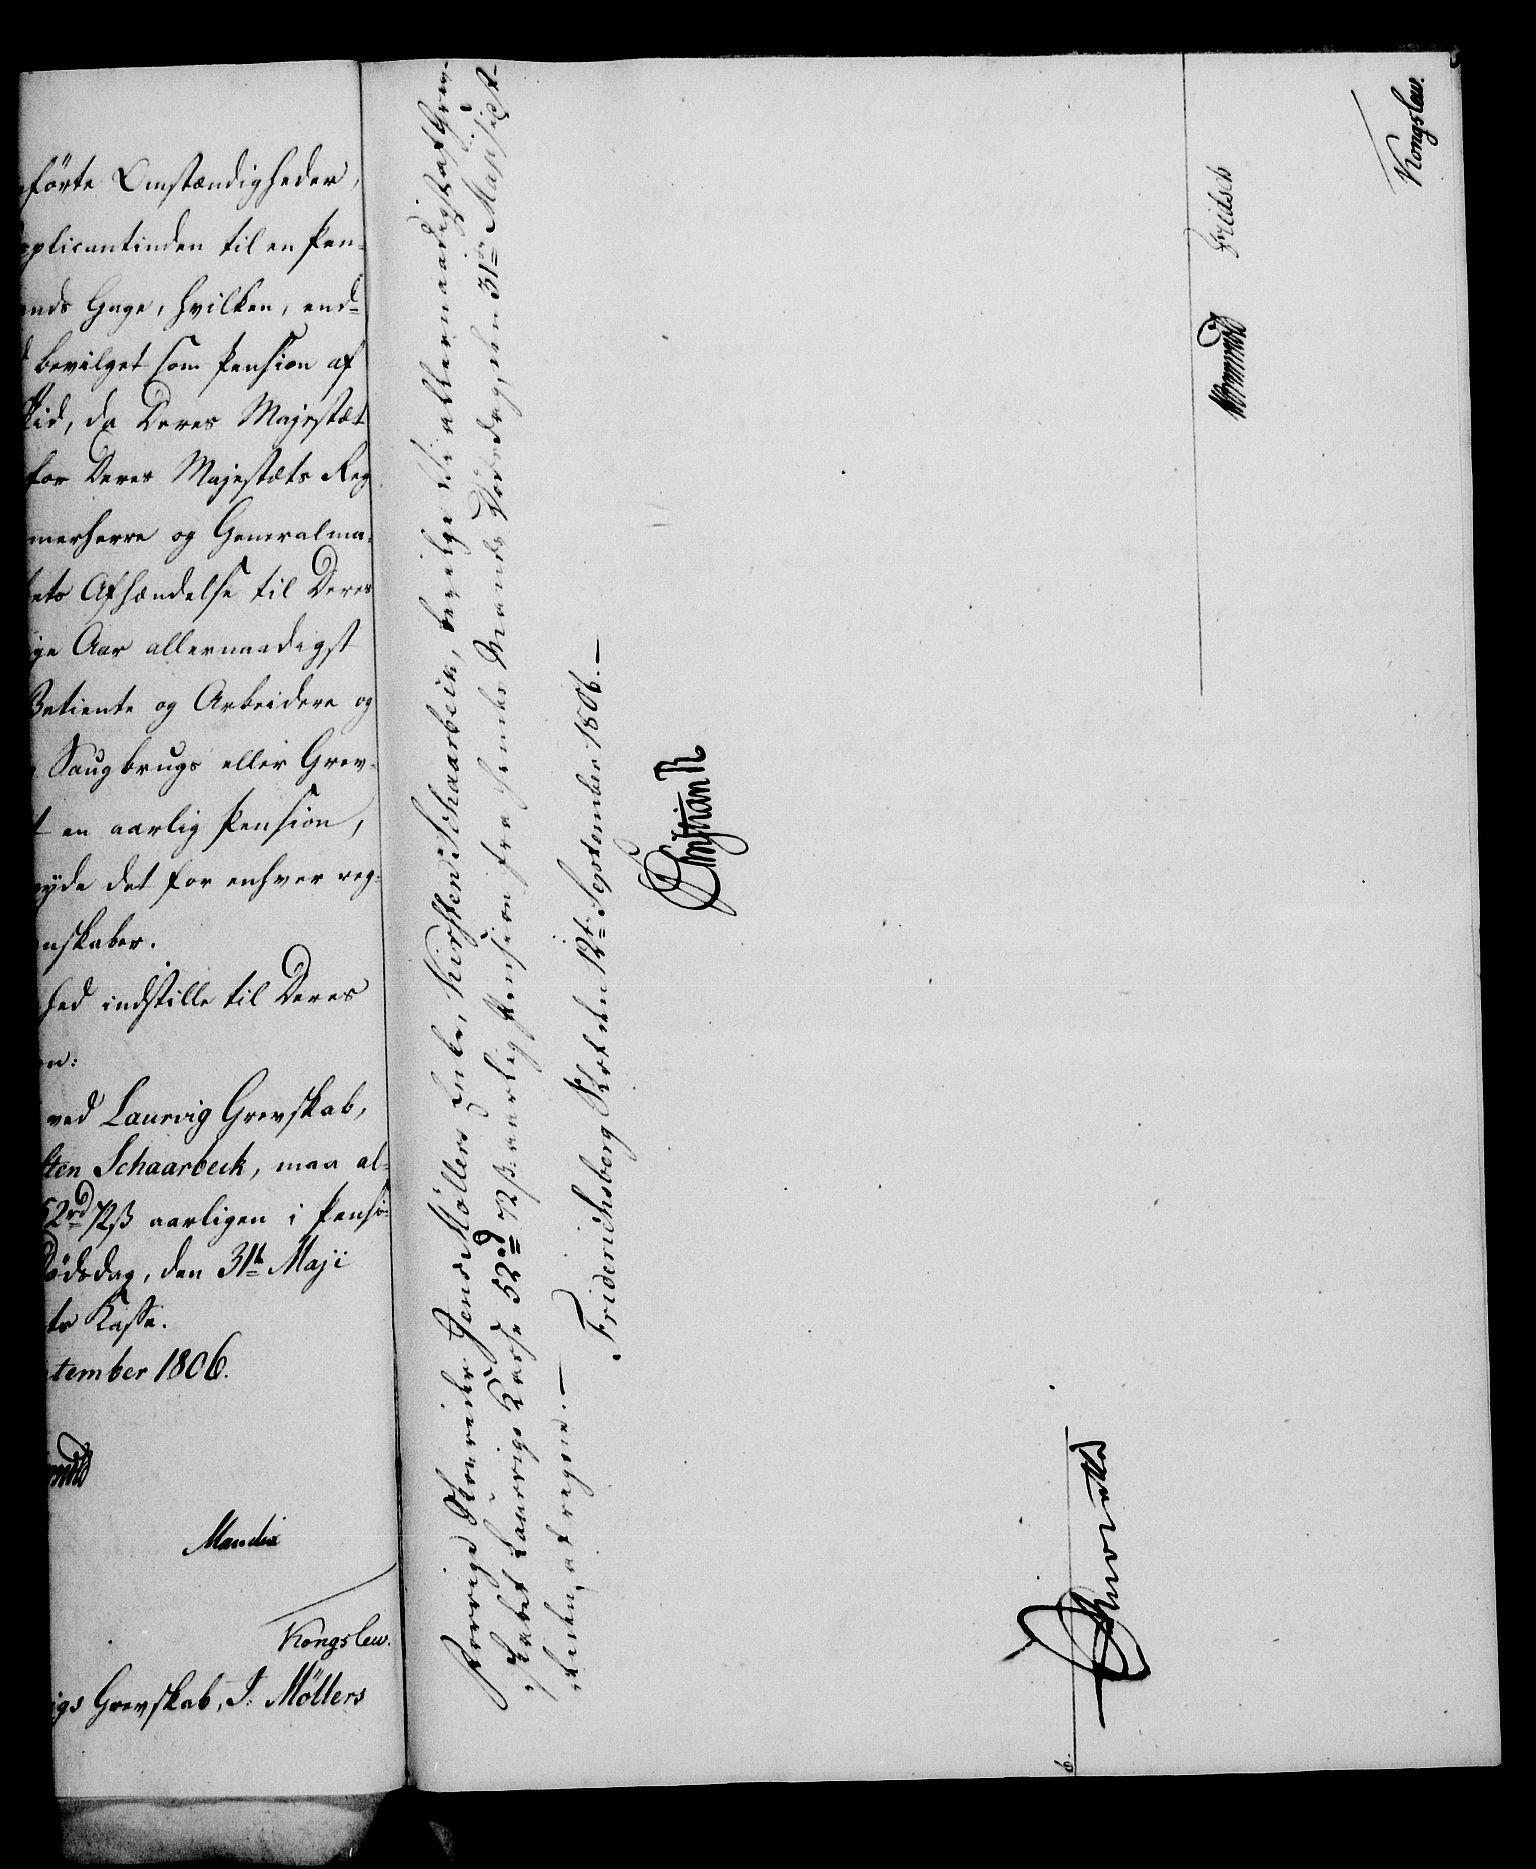 førte Omstændigheder,
pplicantinden til en Pen-
ands Gage, hvilken, end-
bevilget som Pension af
tid, da Deres Majestæt
for Deres Majestæts Reg
merherre og Generalma-
ets Afhændelse til Deres
ige Aar allernaadigst
Betiente og Arbeidere og
Saugbrugs eller Grev-
t en aarlig Pension,
nyde det for enhver reg-
nskaber.
hed indstille til Deres
n:
ved Laurvig Grevskab,
sten Schaarbeck, maa al-
52rd 72ß aarligen i Pensi-
Dødsdag, den 31te Maji
ts Kasse.
tember 1806.
Mandix
Kongslew.
igs Grevskab, J. Möllers
Forrige Skovrider Jens Möllers Enke, Kirsten Schaarbeck, bevilge Vi allernaadigst af Grev-
skabet Laurvigs Kasse 52rd 72ß aarlig Pension fra hendes Mands Dödsdag, den 31te Maji sidst-
leden, at regne.—
Friderichsberg Slot den 12te September 1806.—
Christian R
Wormskiold Fritsch
Kongslew.
6.